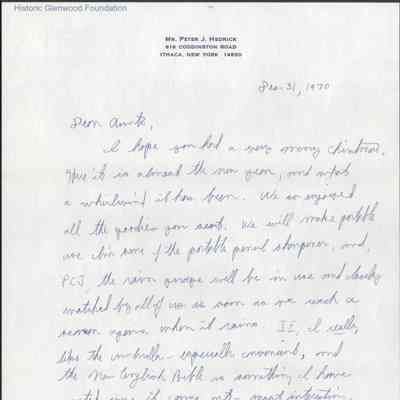 Historic Glenwood Foundation
MR. PETER J. HEDRICK
616 CODDINGTON ROAD
ITHACA, NEW YORK 14850
Dec. 31, 1970
Dear Aunts,
I hope you had a very merry Christmas.
Here it is almost the new year, and what
a whirlwind it has been. We so enjoyed
all the goodies you sent. We will make
use of the portable pencil sharpener, and,
PCJ, the rain gauge will be in use and closely
watched by all of us as soon as we reach a
season again when it rains. II, I really
like the umbrella - especially convenient, and
the New English Bible is something I have
since it came out - most interesting.